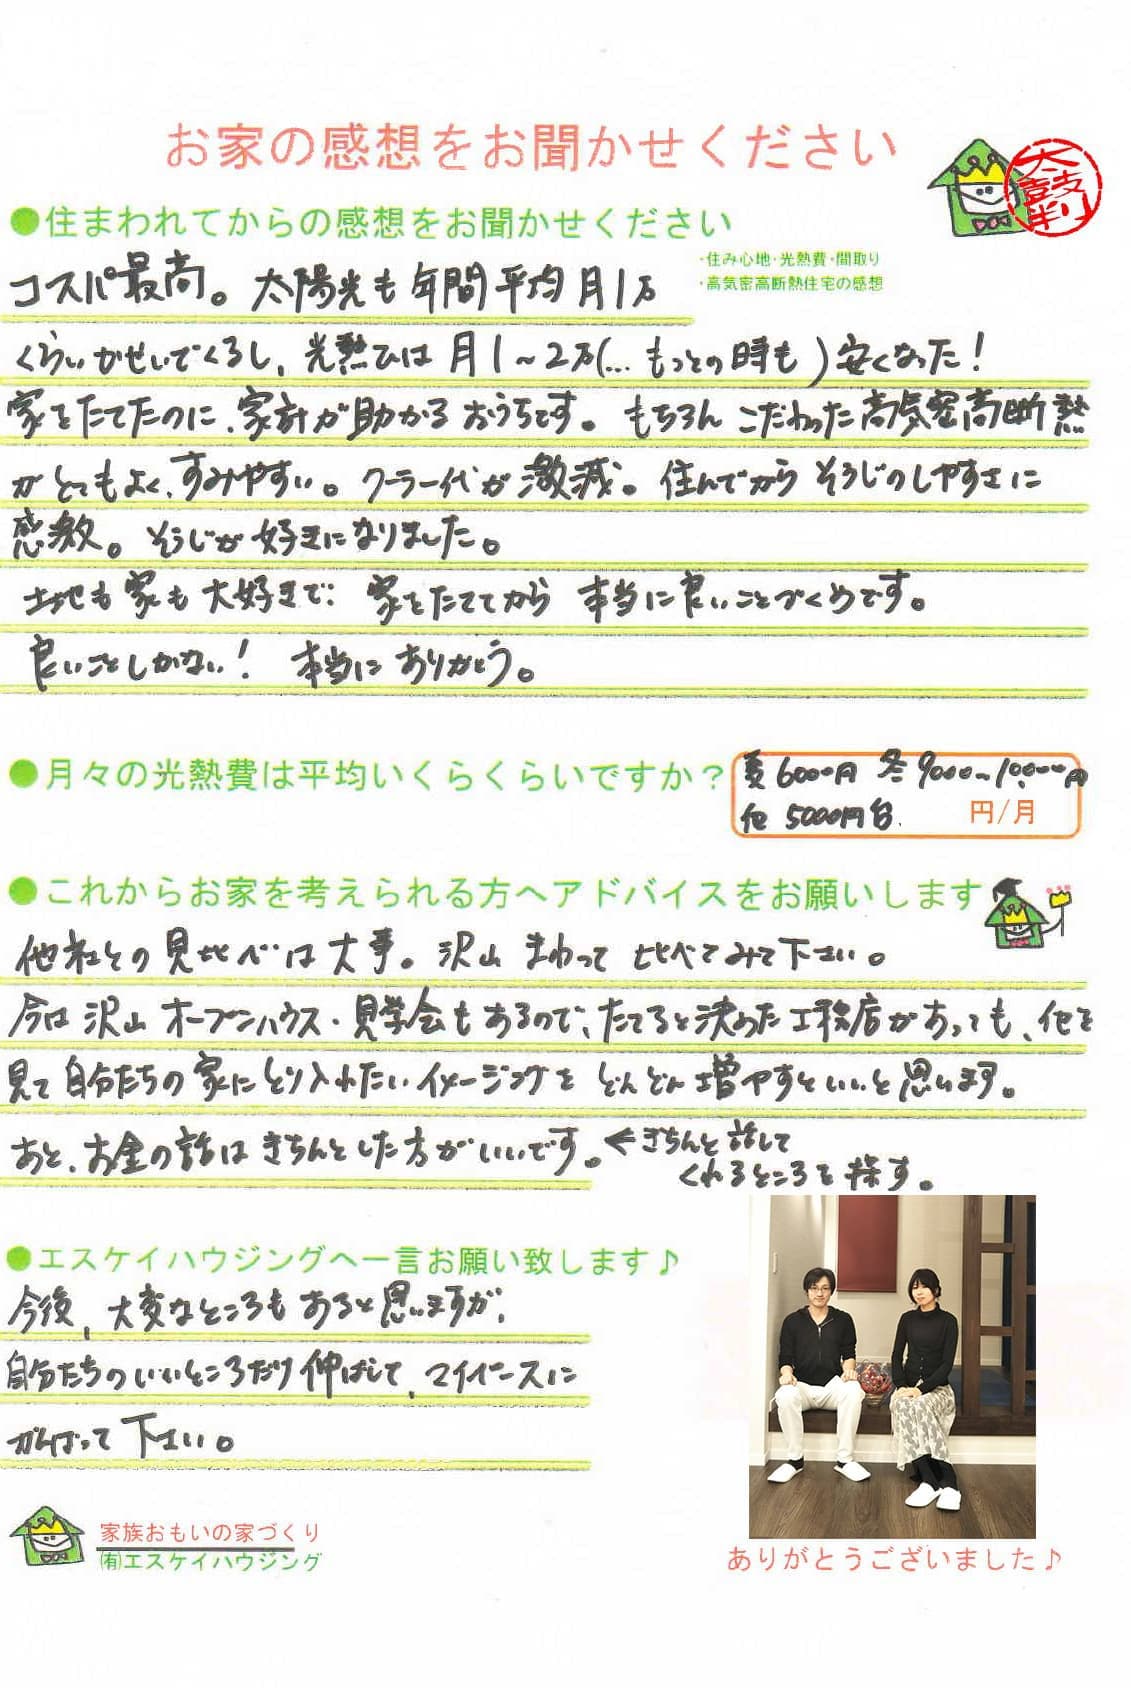 お家の感想をお聞かせください
太鼓判
●住まわれてからの感想をお聞かせください
・住み心地・光熱費・間取り
・高気密高断熱住宅の感想
コスパ最高。太陽光も年間平均月1万
くらいかせいでくるし、光熱ひは月1~2万(…もっとの時も)安くなった!
家をたてたのに、家計が助かるおうちです。もちろんこだわった高気密高断熱
がとてもよく、すみやすい。クーラー代が激減。住んでからそうじのしやすさに
感激。そうじが好きになりました。
土地も家も大好きで、家をたててから本当に良いことづくめです。
良いことしかない!本当にありがとう。
●月々の光熱費は平均いくらくらいですか?
夏6000円 冬9000~10,000円
他 5000円台. 円/月
●これからお家を考えられる方へアドバイスをお願いします
他社との見比べは大事。沢山まわって比べてみて下さい。
今は沢山オープンハウス・見学会もあるので、たてると決めた工務店があっても、他を
見て自分たちの家にとり入れたいイメージングをどんどん増やすといいと思います。
あと、お金の話はきちんとした方がいいです。←きちんと話して
くれるところを探す。
●エスケイハウジングへ一言お願い致します♪
今後、大変なところもあると思いますが、
自分たちのいいところだけ伸ばして、マイペースに
がんばって下さい。
家族おもいの家づくり
㈲エスケイハウジング
ありがとうございました♪